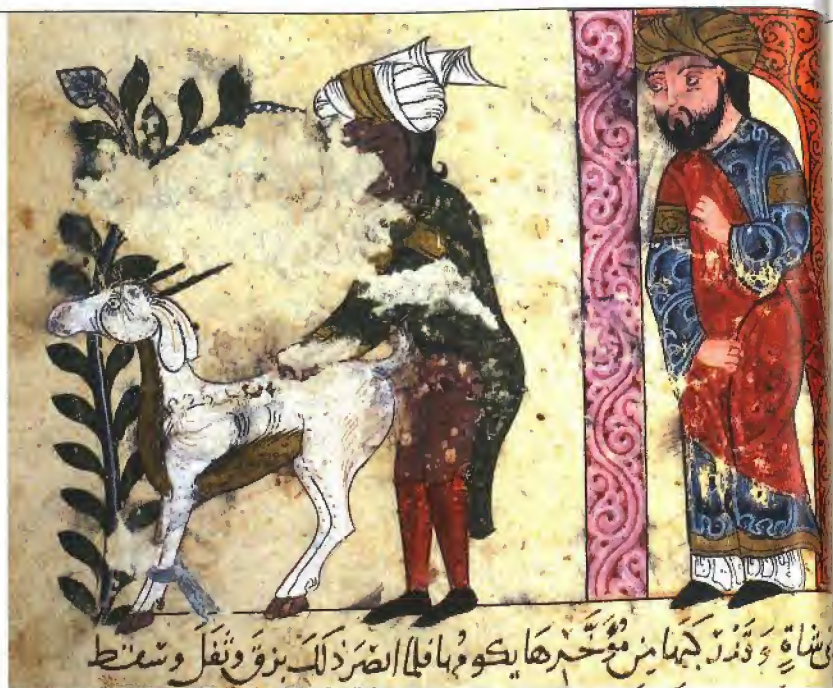 شاةٍ وَقَدْ رَكبَها مِن مُؤَخَّرِهَا يكومُها فلمّا ابصَرَ ذلكَ بزقَ وتَفَلَ وسقط